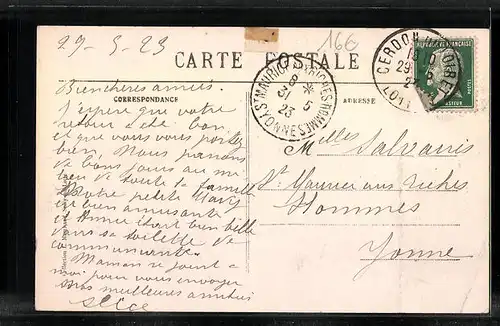 29-5-23
166
CARTE POSTALE
CORRESPONDANCE
ADRESSE
Bien chères amies
J'espère que votre
retour a été bon
et que vous vous portez
bien. Nous pensons
bien de toute la famille
Notre petite Mary
est bien amusante
et était bien belle
dans sa toilette de
communiante.
Maman se joint à
moi pour vous envoyer
nos meilleures amitiés
Mlles Salvairis
St Maurice aux riches
Hommes
Yonne
ST MAURICE AUX RICHES HOMMES
YONNE
8
31-5
23
CERDON DU LOIRET
LOIRET
29-5
REPUBLIQUE FRANÇAISE
POSTES
PASTEUR